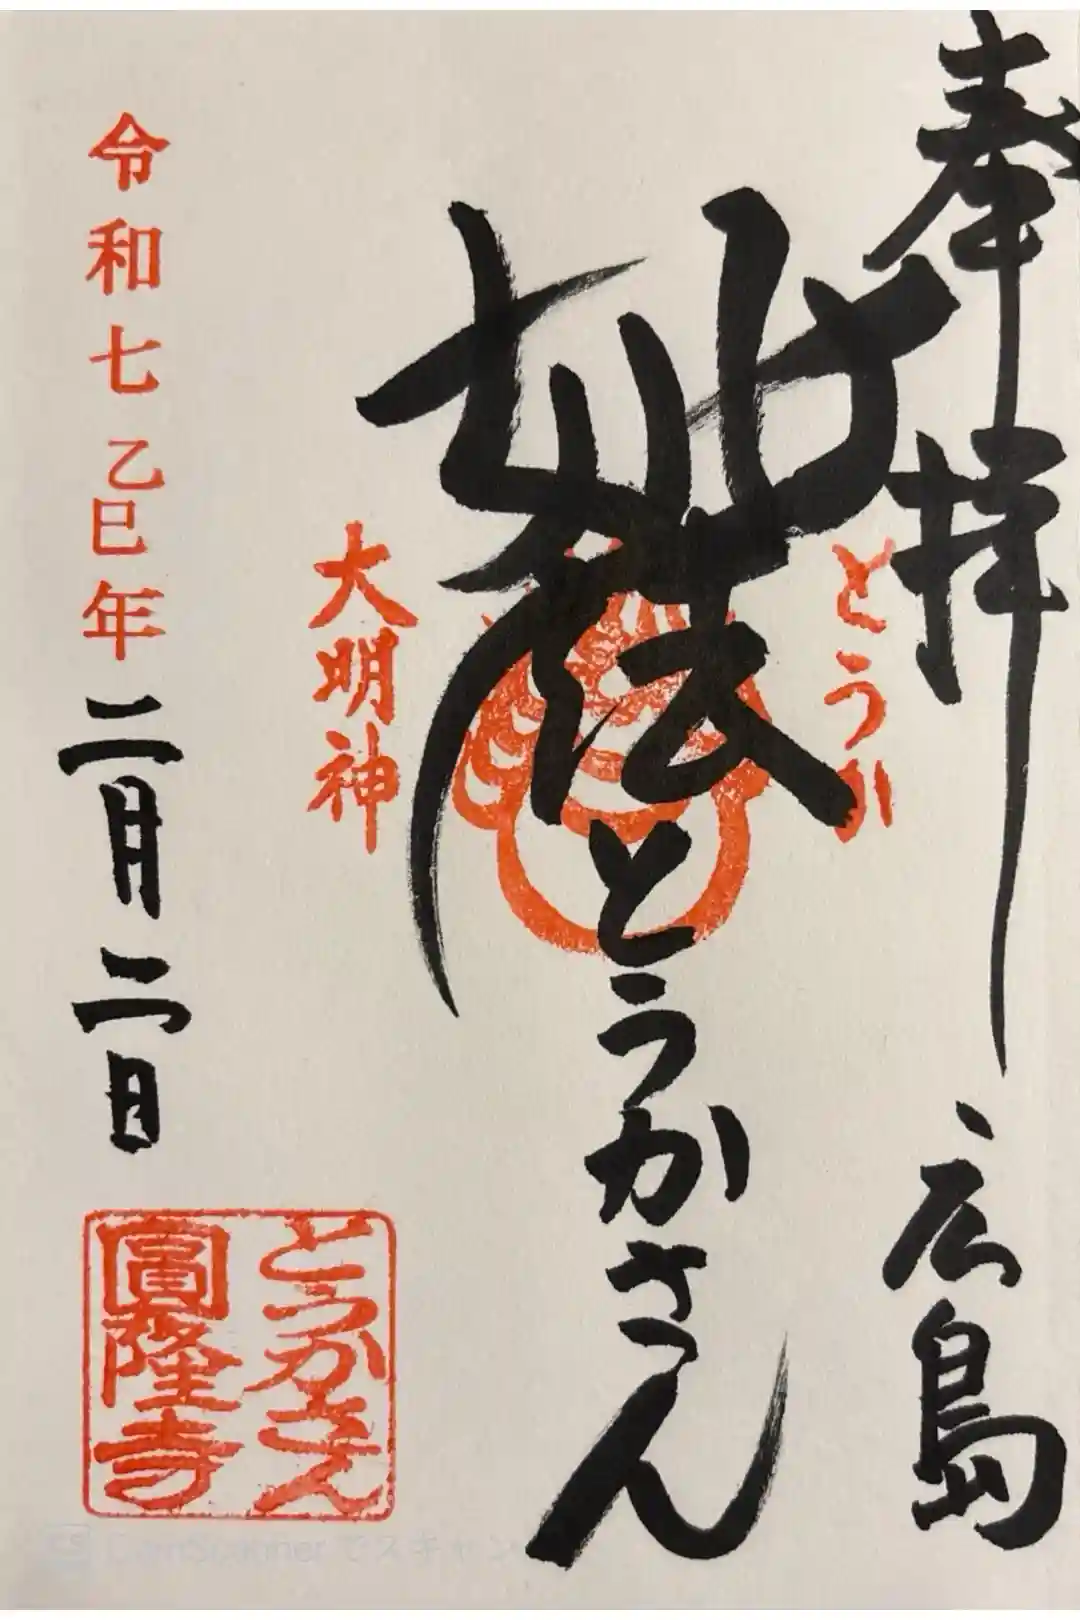 奉拝 広島
とうか
妙法
とうかさん
大明神
令和七乙巳年二月二日
とうかさん
圓隆寺
CS CamScannerでスキャン